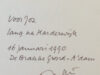 Voor Jos
lang na Harderwijk
16 januari 1990
De Brakke Grond - A'dam